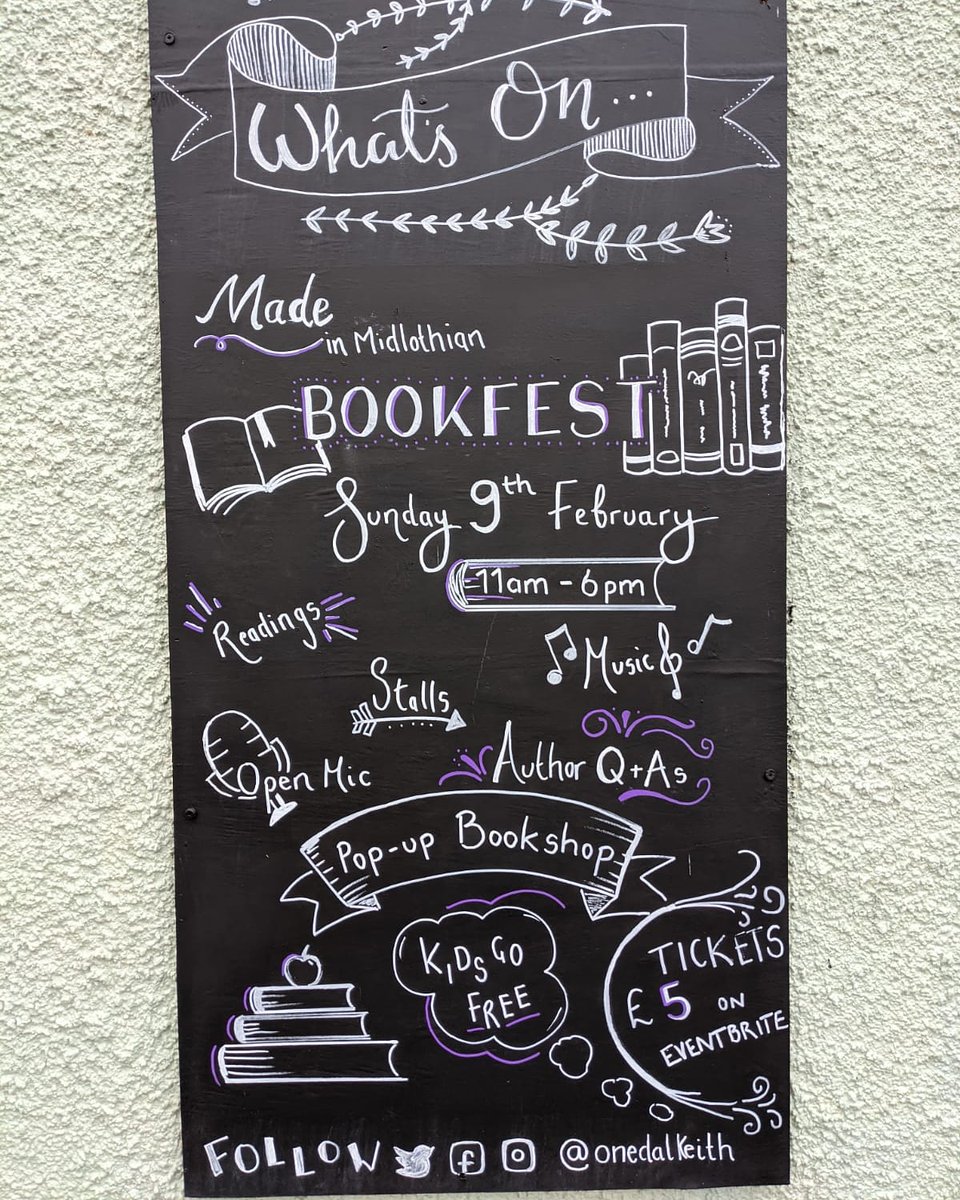 What's On...
Made
in Midlothian
BOOKFEST
Sunday 9th February
11am - 6pm
Readings
Music
Stalls
Open Mic
Author Q+As
Pop-up Bookshop
KIDS GO
FREE
TICKETS
£5 ON
EVENTBRITE
FOLLOW @onedalkeith